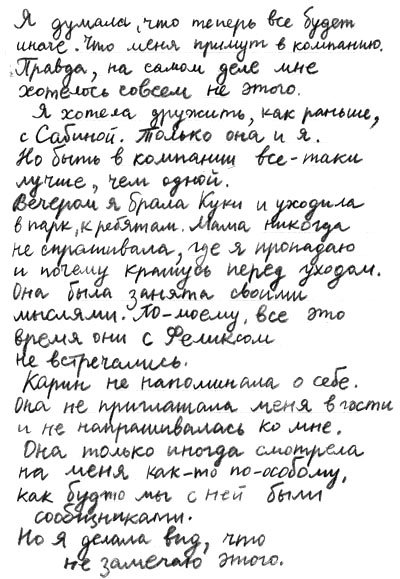 Я думала, что теперь все будет
иначе. Что меня примут в компанию.
Правда, на самом деле мне
хотелось совсем не этого.
Я хотела дружить, как раньше,
с Сабиной. Только она и я.
Но быть в компании все-таки
лучше, чем одной.
Вечером я брала Куки и уходила
в парк, к ребятам. Мама никогда
не спрашивала, где я пропадаю
и почему крашусь перед уходом.
Она была занята своими
мыслями. По-моему, все это
время они с Феликсом
не встречались.
Карин не напоминала о себе.
Она не приглашала меня в гости
и не напрашивалась ко мне.
Она только иногда смотрела
на меня как-то по-особому,
как будто мы с ней были
сообщниками.
Но я делала вид, что
не замечаю этого.